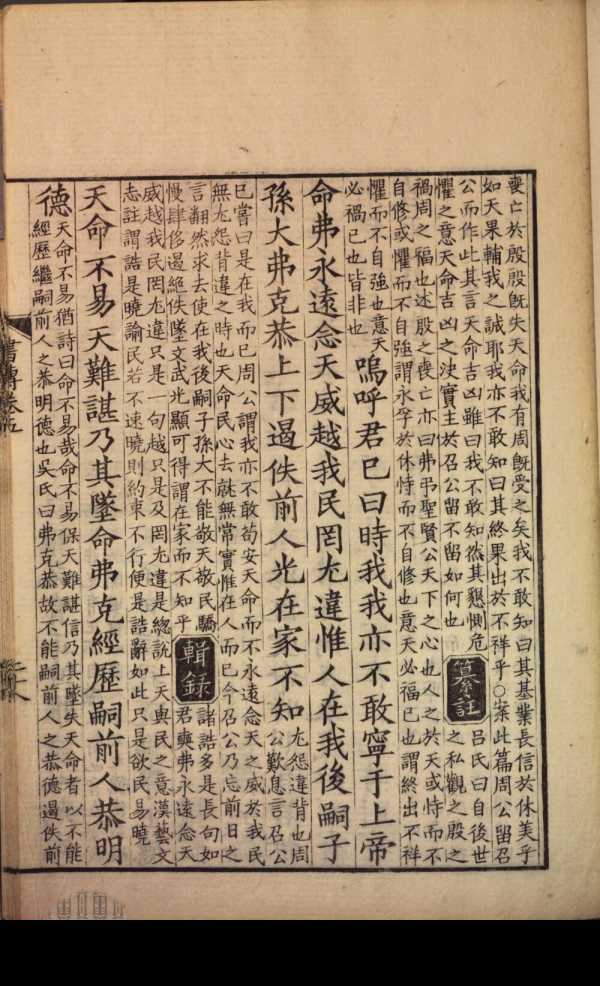 喪亡於殷殷旣失天命我有周旣受之矣我不敢知曰其基業長信於休美乎
如天果輔我之誠耶我亦不敢知曰其終果出於不祥乎○案此篇周公留召
公而作此其言天命吉凶雖曰我不敢知然其懇惻危
懼之意天命吉凶之決實主於召公留不留如何也
纂註
呂氏曰自後世
之私觀之殷之
禍周之福也述殷之喪亡亦曰弗弔聖賢公天下之心也人之於天或恃而不
自修或懼而不自強謂永孚於休恃而不自修也意天必福已也謂終出不祥
懼而不自強也意天
必禍已也皆非也
嗚呼君已曰時我我亦不敢寧于上帝
命弗永遠念天威越我民罔尤違惟人在我後嗣子
孫大弗克恭上下遏佚前人光在家不知
尤怨違背也周
公歎息言召公
已嘗曰是在我而已周公謂我亦不敢苟安天命而不永遠念天之威於我民
無尤怨背違之時也天命民心去就無常實惟在人而已今召公乃忘前日之
言翻然求去使在我後嗣子孫大不能敬天敬民驕
慢肆侈遏絶佚墜文武光顯可得謂在家而不知乎
輯録
諸誥多是長句如
君奭弗永遠念天
威越我民罔尤違只是一句越只是及罔尤違是總說上天與民之意漢藝文
志註謂誥是曉諭民若不速曉則約束不行便是誥辭如此只是欲民易曉
天命不易天難諶乃其墜命弗克經歷嗣前人恭明
德
天命不易猶詩曰命不易哉命不易保天難諶信乃其墜失天命者以不能
經歷繼嗣前人之恭明德也吳氏曰弗克恭故不能嗣前人之恭德遏佚前
書傳卷五